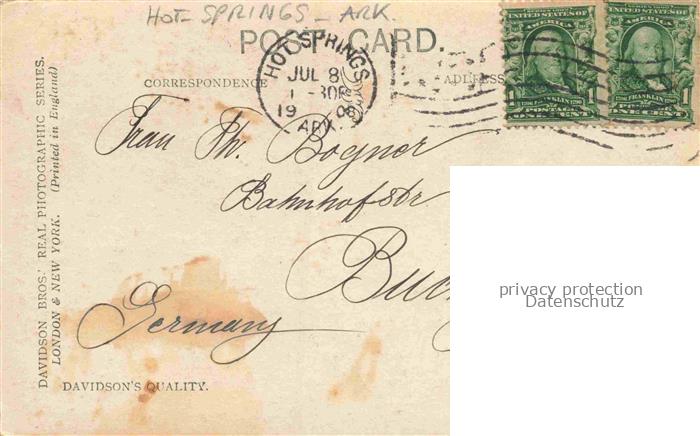 HOT SPRINGS - ARK.
POST CARD.
CORRESPONDENCE
ADDRESS
HOT SPRINGS
JUL 8
1 - 30P
19
ARK.
SERIES 1902
UNITED STATES OF
AMERICA
FRANKLIN
POSTAGE
1 ONE CENT 1
SERIES 1902
UNITED STATES OF
AMERICA
FRANKLIN
POSTAGE
ONE CENT 1
Frau Ph. Bogner
Bahnhofstr
Buc
Germany
DAVIDSON BROS.' REAL PHOTOGRAPHIC SERIES.
LONDON & NEW YORK. (Printed in England)
DAVIDSON'S QUALITY.
privacy protection
Datenschutz